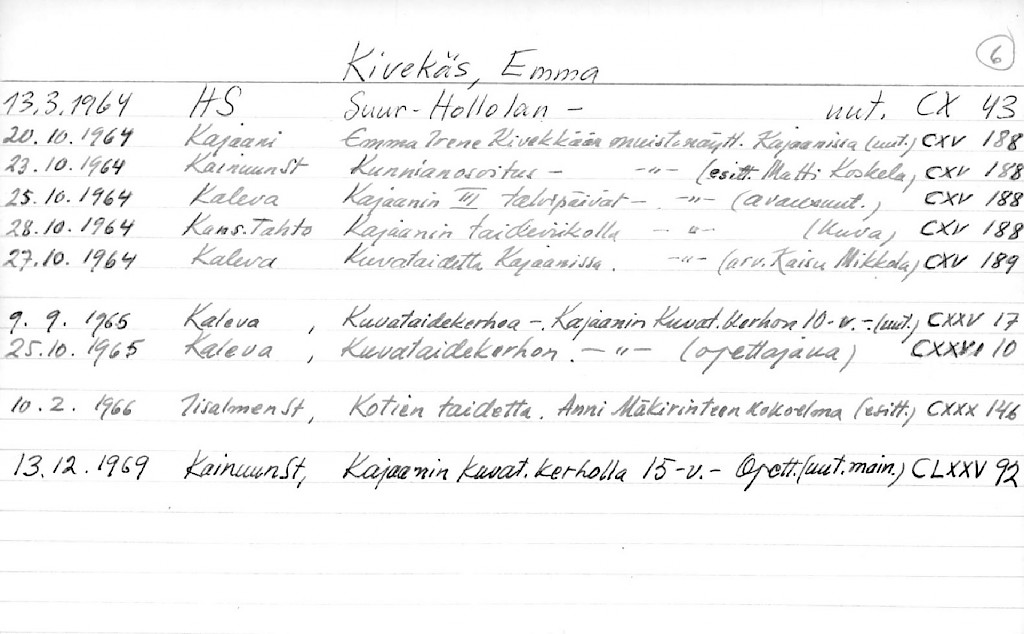 6
Kivekäs, Emma
13.3.1964 HS Suur-Hollolan - uut. CX 43
20.10.1964 Kajaani Emma Irene Kivekkään muistonäytt. Kajaanissa (uut.) CXV 188
23.10.1964 KainuunSt Kunnianosoitus - -"- (esitt. Matti Koskela) CXV 188
25.10.1964 Kaleva Kajaanin III talvipäivät - -"- (avausuut.) CXV 188
28.10.1964 Kans.Tahto Kajaanin taideviikolla - "- (kuva) CXV 188
27.10.1964 Kaleva Kuvataidetta Kajaanissa. -"- (arv. Kaisu Mikkola) CXV 189
9.9.1965 Kaleva , Kuvataidekerhoa -. Kajaanin Kuvat.kerhon 10-v. - (uut.) CXXV 17
25.10.1965 Kaleva , Kuvataidekerhon. -"- (opettajana) CXXVI 10
10.2.1966 IisalmenSt, Kotien taidetta. Anni Mäkirinteen kokoelma (esitt.) CXXX 146
13.12.1969 KainuunSt, Kajaanin kuvat.kerholla 15-v. - Opett. (uut.main.) CLXXV 92